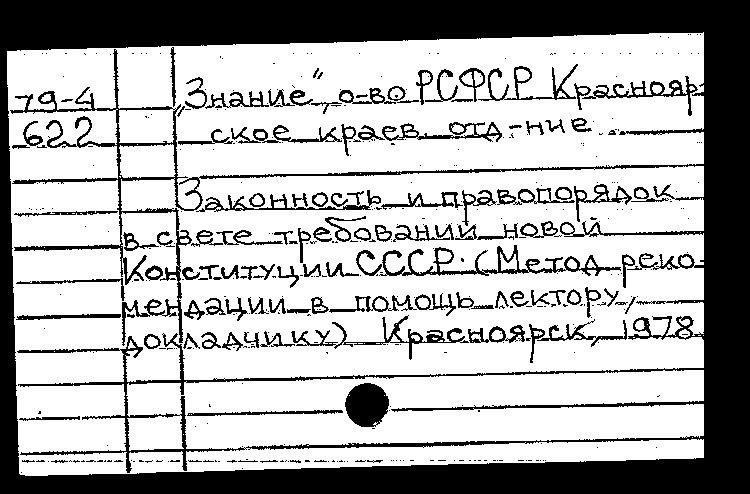 79-4 „Знание“, о-во РСФСР Краснояр-
622 ское краев. отд-ние
Законность и правопорядок
в свете требований новой
Конституции СССР. (Метод. реко-
мендации в помощь лектору,
докладчику). Красноярск, 1978.